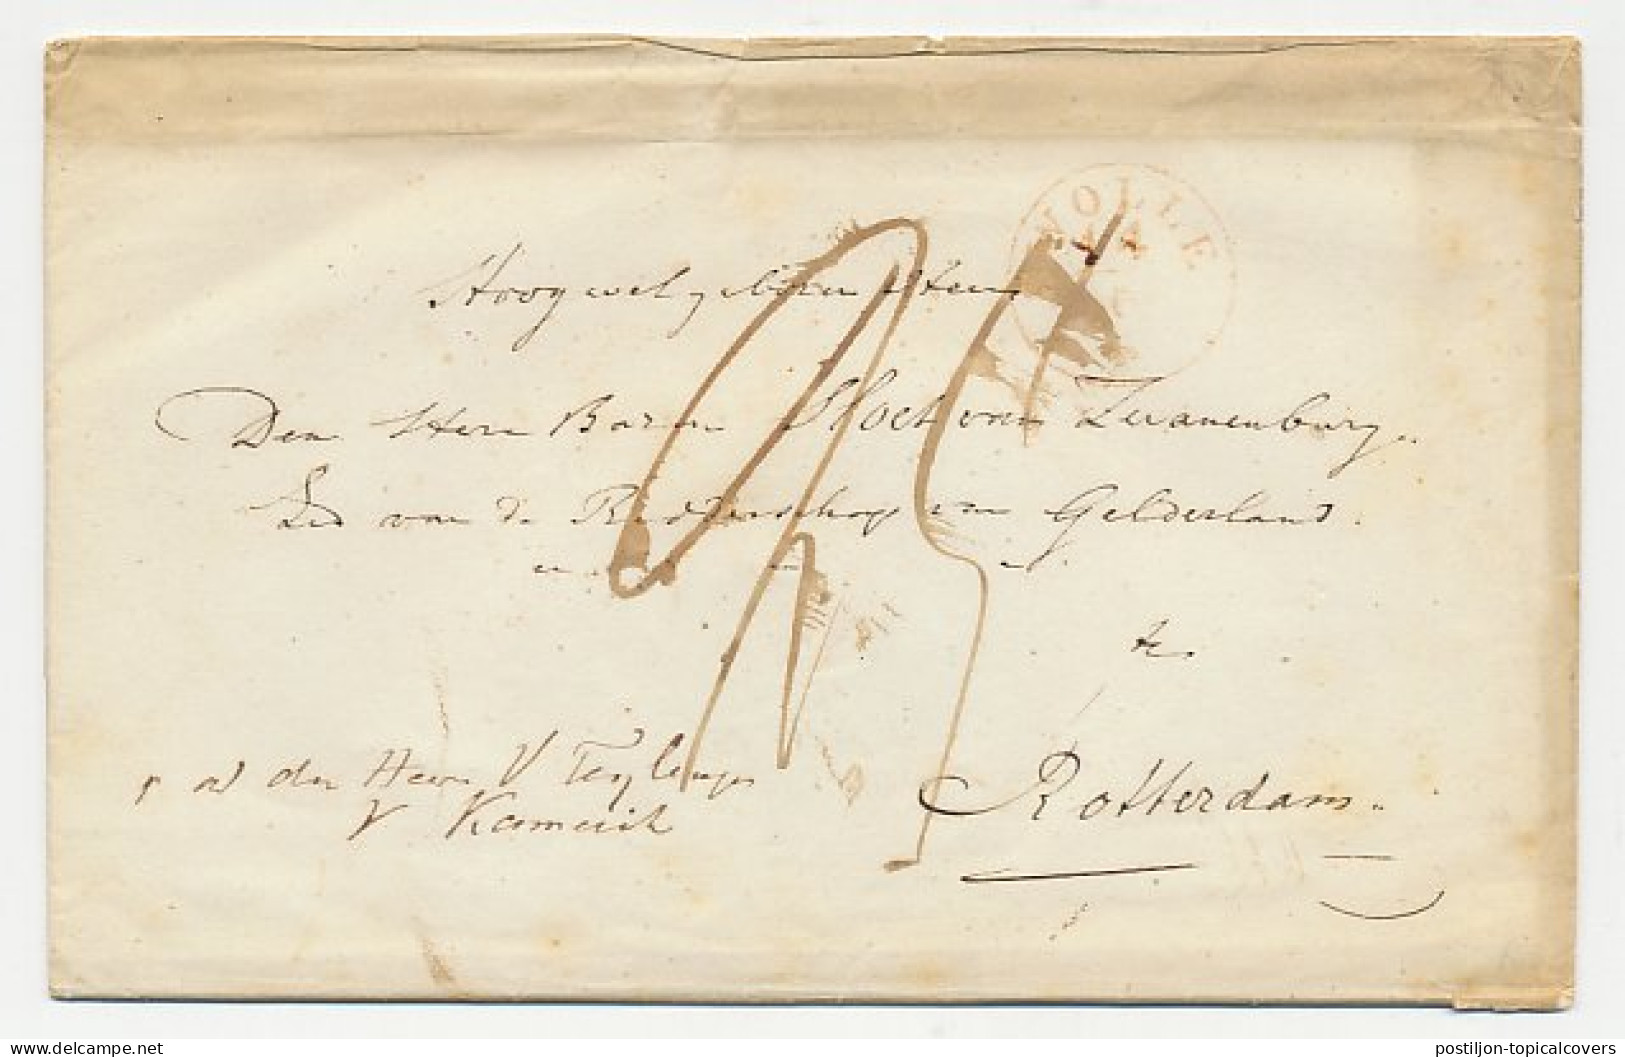 ZWOLLE
Hoog wel geboren Heer
Den Heer Baron Sloet van Zwanenburg.
Lid van de Ridderschap van Gelderland.
te
Rotterdam.
den Heer V Teylingen
V Kamerik
postiljon-collections.delcampe.net
postiljon-topicalcovers